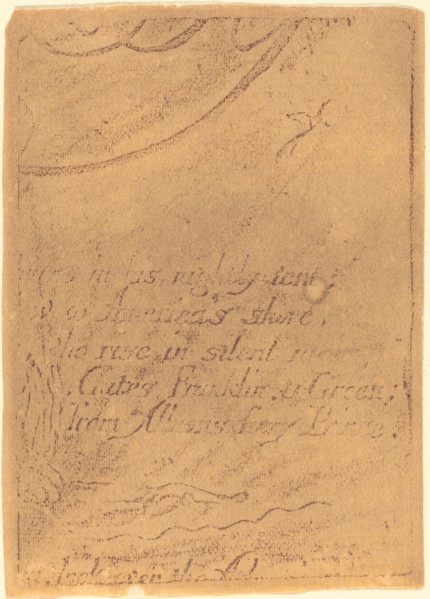 in his nightly tent;
to America's shore,
who rise in silent
Gates Franklin & Green;
from Albions fiery Prince.
look over the